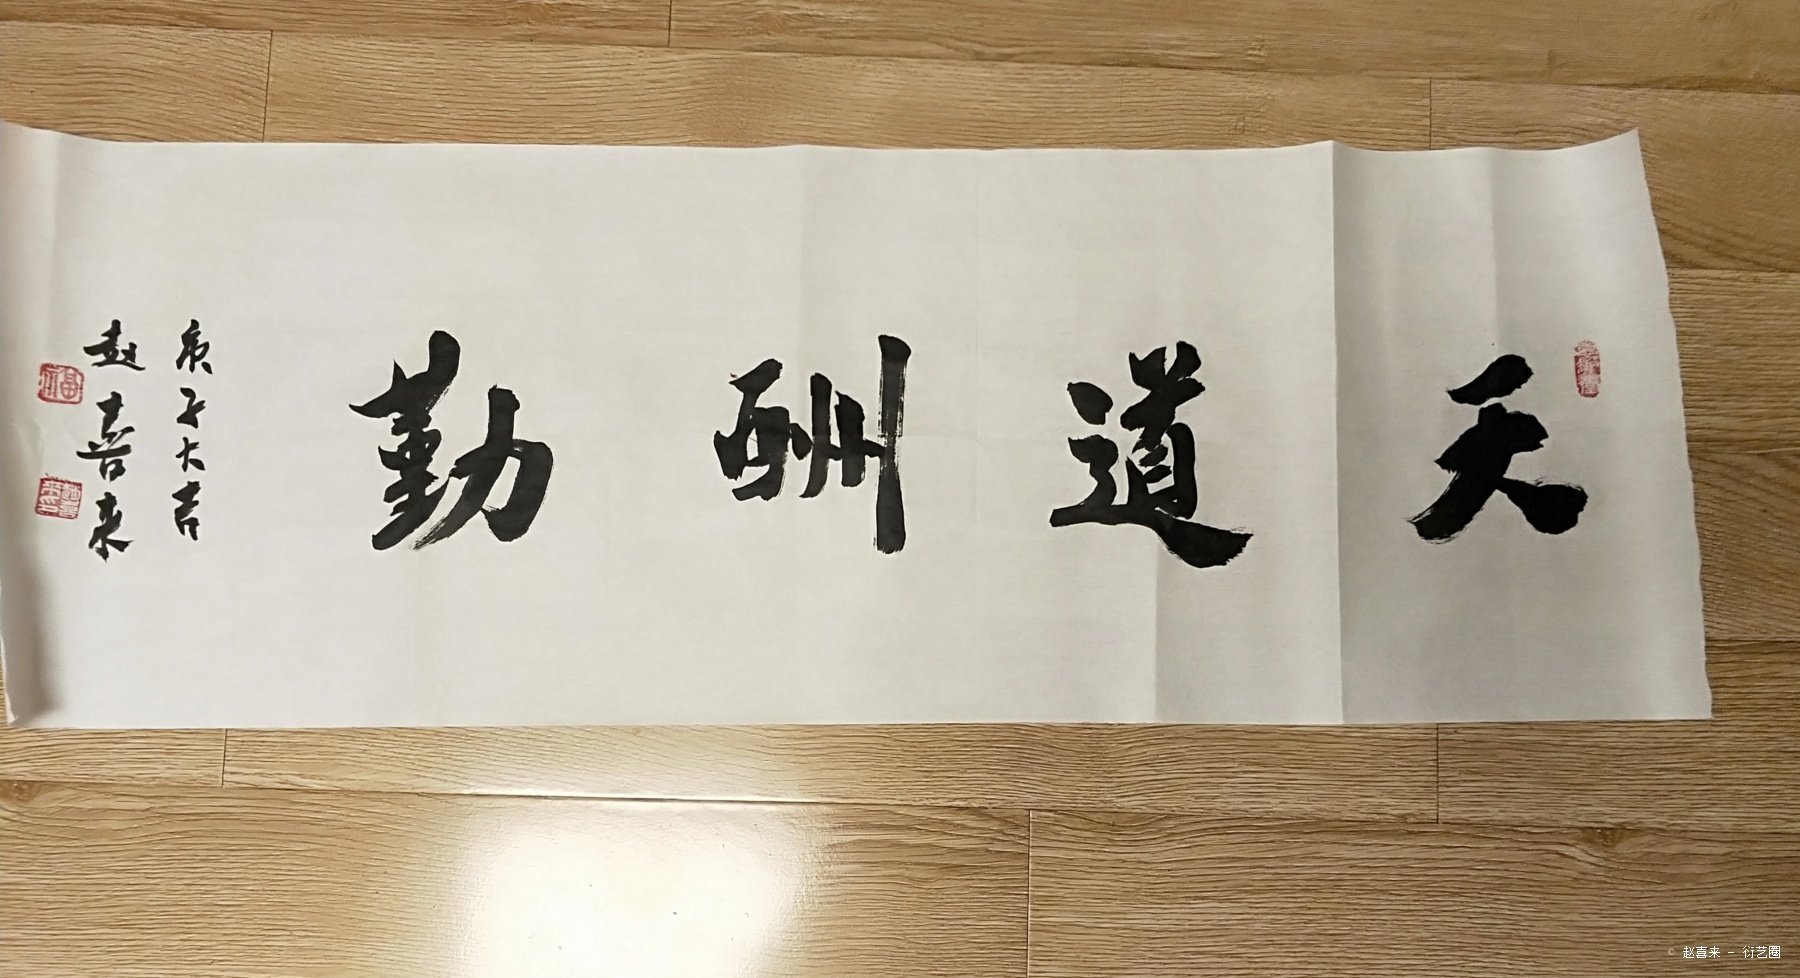 天道酬勤
庚子大吉
赵喜来
© 赵喜来 - 衍艺圈